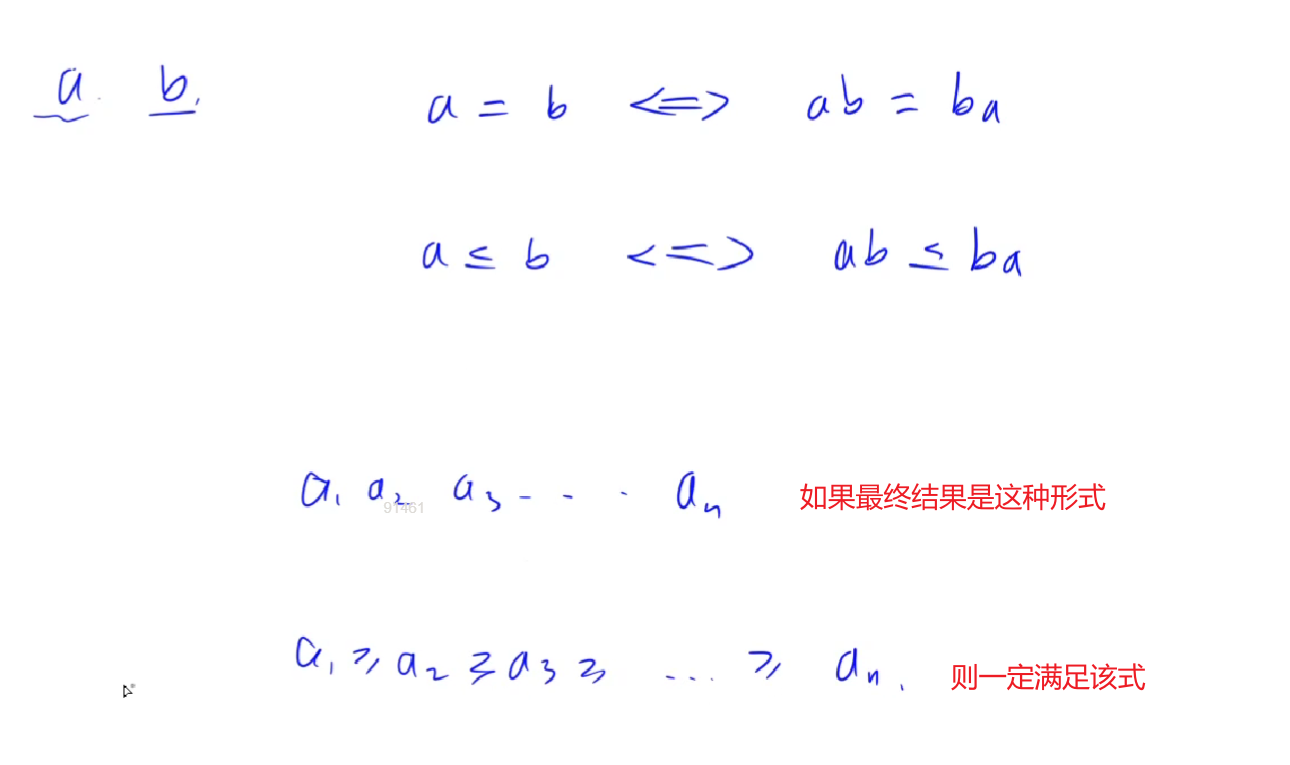 a. b.
a = b <=> ab = ba
a ≤ b <=> ab ≤ ba
a₁ a₂ a₃ - - · aₙ 如果最终结果是这种形式
91461
a₁ ≥ a₂ ≥ a₃ ≥ ... ≥ aₙ. 则一定满足该式